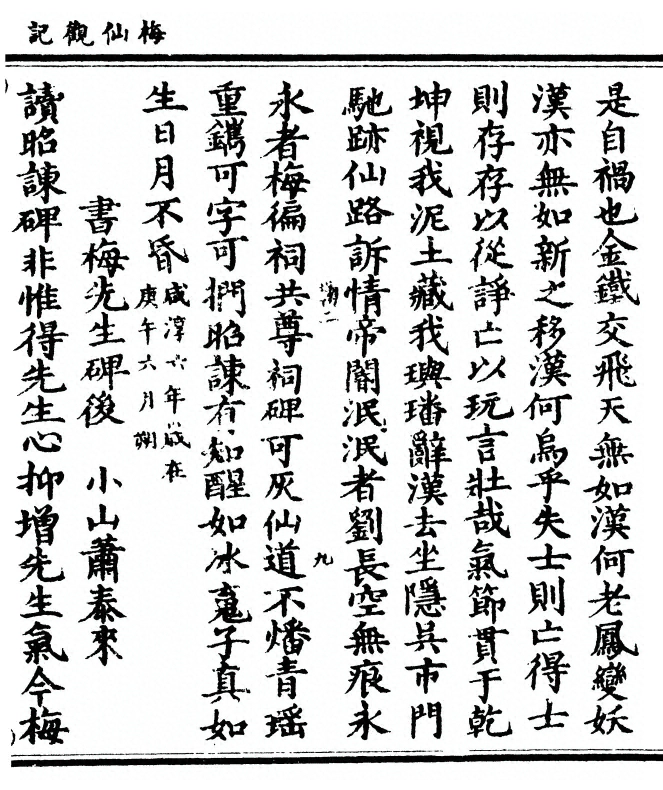 梅仙觀記
是自禍也金鐵交飛天無如漢何老鳳變妖
漢亦無如新之移漢何烏乎失士則亡得士
則存存以從諍亡以玩言壯哉氣節貫于乾
坤視我泥土藏我璵璠辭漢去坐隱吳市門
馳跡仙路訴情帝閽泯泯者劉長空無痕永
永者梅徧祠共尊祠碑可灰仙道不燔青瑶
重鐫可字可捫昭諫有知醒如冰䰟子真如
生日月不昏咸淳六年歲在
庚午六月朔
書梅先生碑後 小山蕭泰來
讀昭諫碑非惟得先生心抑增先生氣今梅
九